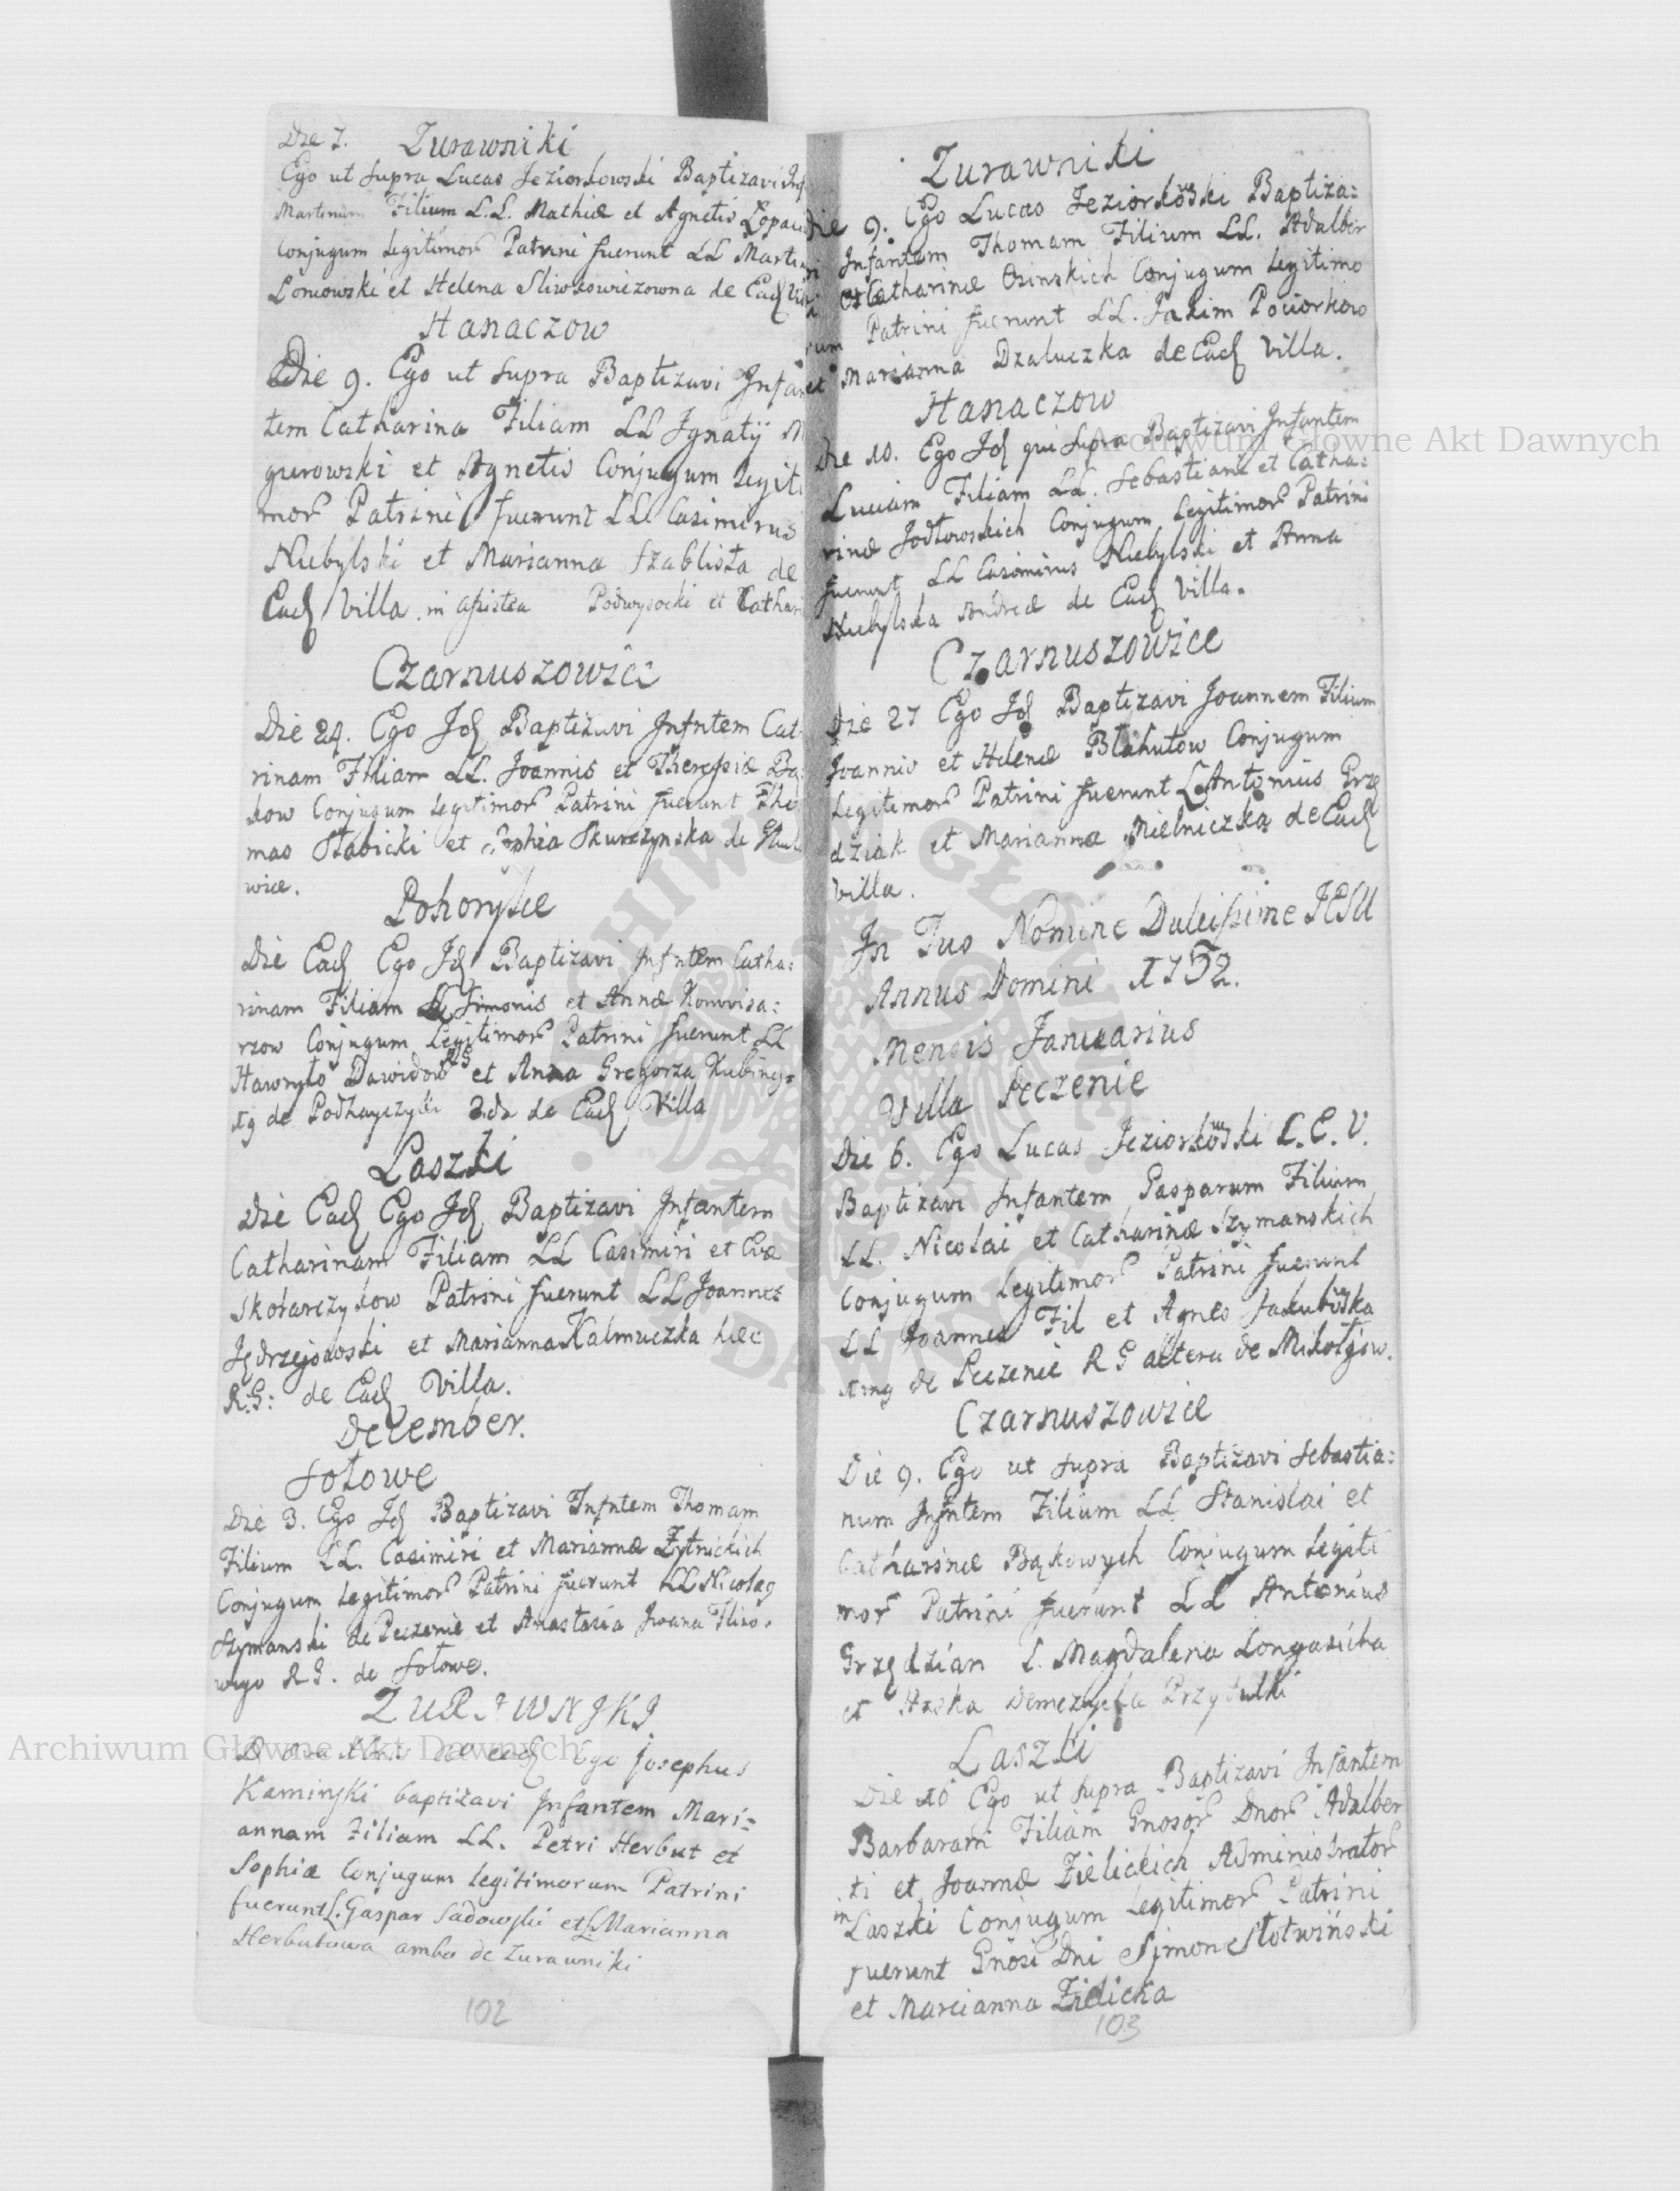 Die 7. Zurawniki
Ego ut supra Lucas Jeziorkowski Baptizavi Inf
Martinum Filium L.L. Mathiæ et Agnetis
Conjugum Legitimor Patrini fuerunt LL Marti
Lomowski et Helena Sliwkowiczowna de Ead Vill
Hanaczow
Die 9. Ego ut supra Baptizavi Infan
tem Catharina Filiam LL Ignatij M
gurowski et Agnetis Conjugum Legiti
mor Patrini fuerunt LL Casimirus
Niebylski et Marianna Szablista de
Ead Villa. in Podwysocki et Cathari
Czarnuszowice
Die 24. Ego Id Baptizavi Infntem Cat
rinam Filiam LL. Joannis et Theressiæ
kow Conjugum Legitimor Patrini fuerunt Tho
mas Stabicki et Sophia Skurczynska de
wice.
Pohorylce
Die Ead Ego Id Baptizavi Infntem Catha:
rinam Filiam LL Simonis et Annæ Konwisa:
rzow Conjugum Legitimor Patrini fuerunt LL
Hawryło Dawidow RG et Anna Gregorza
de Podhayczyki de Ead Villa
Laszki
Die Ead Ego Id Baptizavi Infantem
Catharinam Filiam LL Casimiri et Evæ
Skotarczykow Patrini fuerunt LL Joannes
Jędrzejowski et Marianna Kalmuczka hæc
R.G: de Ead Villa.
December.
Sołowe
Die 3. Ego Id Baptizavi Infntem Thomam
Filium LL. Casimiri et Mariannæ Zytnickich
Conjugum Legitimor Patrini fuerunt LL Nicolag
Szymanski de Peczenie et Anastasia Iwana
R G. de Sołowe.
ZURAWNIKI
Ego Josephus
Kaminski baptizavi Infantem Mari=
annam Filiam LL. Petri Herbut et
Sophiæ Conjugum legitimorum Patrini
fuerunt L. Gaspar Sadowski et L. Marianna
Herbutowa ambo de Zurawniki
102
Zurawniki
Die 9. Ego Lucas Jeziorkowski Baptiza=
vi Infantem Thomam Filium LL. Adalber
et Catharinæ Osinskich Conjugum Legitimo
rum Patrini fuerunt LL. Jakim Pociorkow
et Marianna Dzaluczka de Ead Villa.
Hanaczow
Die 10. Ego Id qui supra Baptizavi Infantem
Luciam Filiam LL. Sebastiani et Catha:
rinæ Jodłowskich Conjugum Legitimor Patrini
fuerunt LL Casimirus Niebylski et Anna
Niebylska Andreæ de Ead Villa.
Czarnuszowice
Die 27 Ego Id Baptizavi Joannem Filium
Joannis et Helenæ Błahutow Conjugum
Legitimor Patrini fuerunt L Antonius Grzę
dziak et Marianna Mielniczka de Ead
Villa.
In Tuo Nomine Dulcissime JESU
Annus Domini 1752.
Mensis Januarius
Villa Peczenie
Die 6. Ego Lucas Jeziorkowski C. E. V.
Baptizavi Infantem Gasparum Filium
LL. Nicolai et Catharinæ Szymanskich
Conjugum Legitimor Patrini fuerunt
LL Joannes Fil et Agnes
de Peczenie R G altera de Mikołajow.
Czarnuszowice
Die 9. Ego ut supra Baptizavi Sebastia:
num Infntem Filium LL Stanislai et
Catharinæ Bąkowych Conjugum Legiti
mor Patrini fuerunt LL Antonius
Grzędzian L. Magdalena Longasicha
et Demczycha Przytulki
Laszki
Die 16 Ego ut supra Baptizavi Infantem
Barbaram Filiam Gnosor Dnor Adalber
ti et Joannæ Zielickich Administrator
in Laszki Conjugum Legitimor Patrini
fuerunt Gnosi Dni Simon Słotwiński
et Marcianna Zielicka
103
Archiwum Główne Akt Dawnych
Archiwum Główne Akt Dawnych
ARCHIWUM GŁÓWNE AKT DAWNYCH